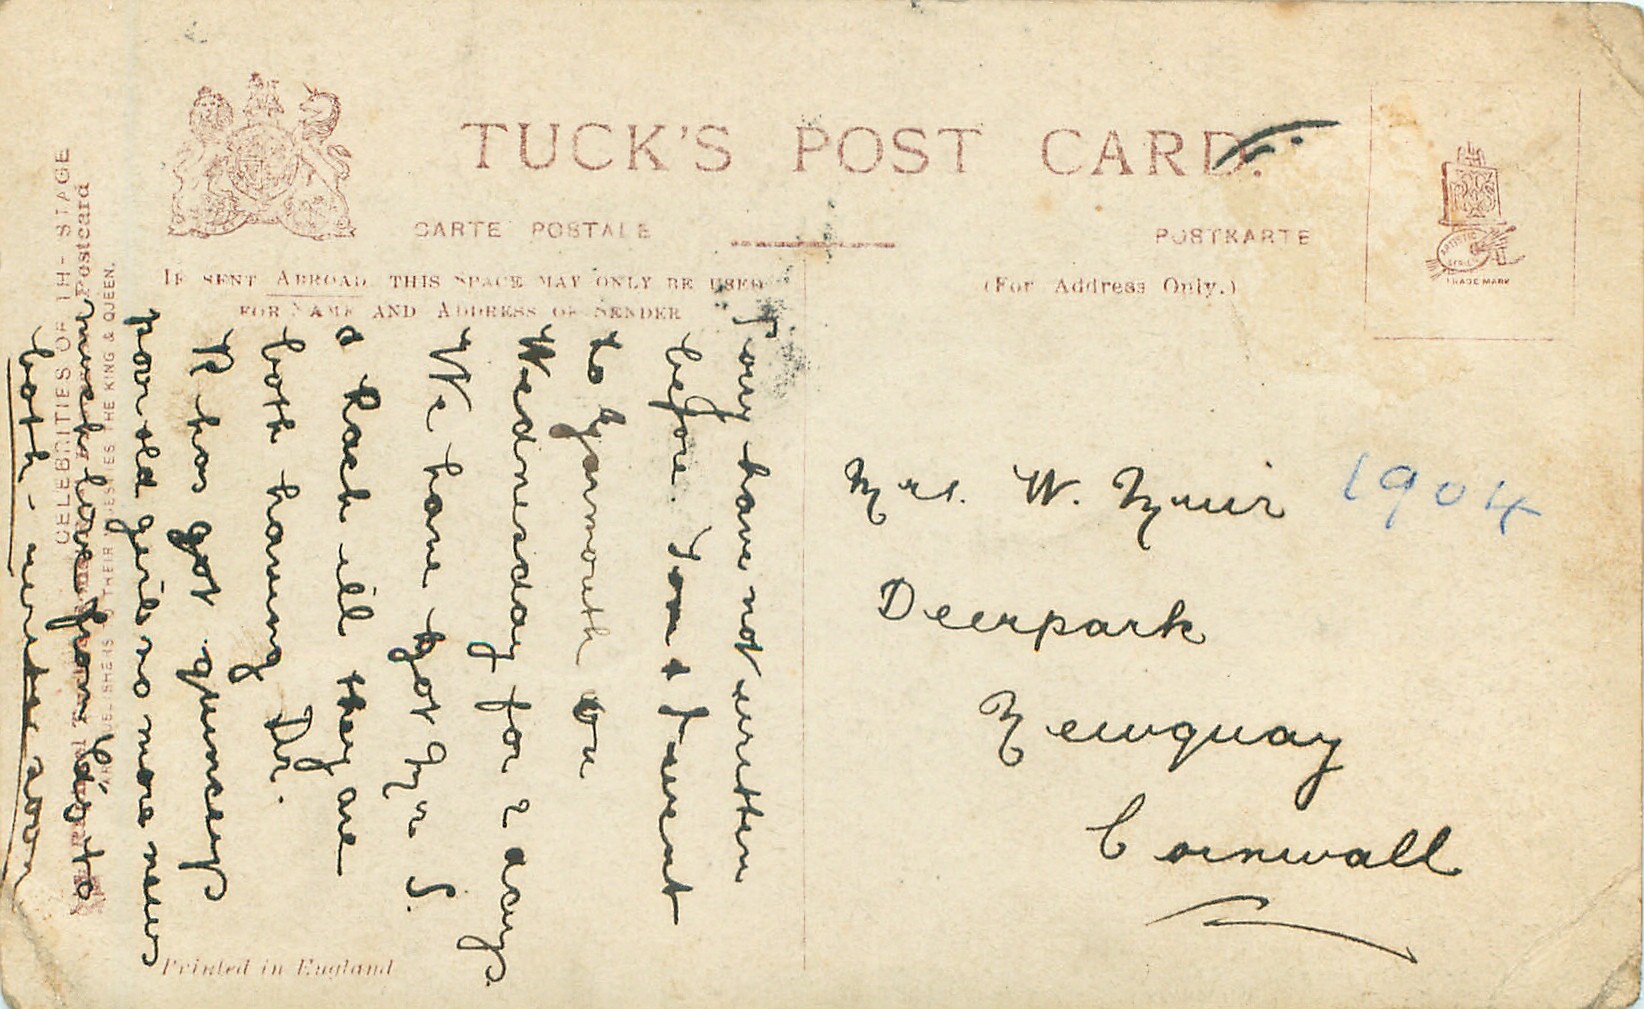 TUCK'S POST CARD.
CARTE POSTALE
POSTKARTE
IF SENT ABROAD THIS SPACE MAY ONLY BE USED
FOR NAME AND ADDRESS OF SENDER
(For Address Only.)
ARTISTIC SERIES
TRADE MARK
Mrs. W. Muir 1904
Deerpark
Newquay
Cornwall
have not written
before. Tom & I went
to Yarmouth on
Wednesday for 2 days.
We have got Mr S.
& Rach ill they are
both having Dr.
R has got quinseys
poor old girl no more news
much love from to
both - write soon
CELEBRITIES OF THE STAGE
Postcard
THEIR MAJESTIES THE KING & QUEEN.
Printed in England